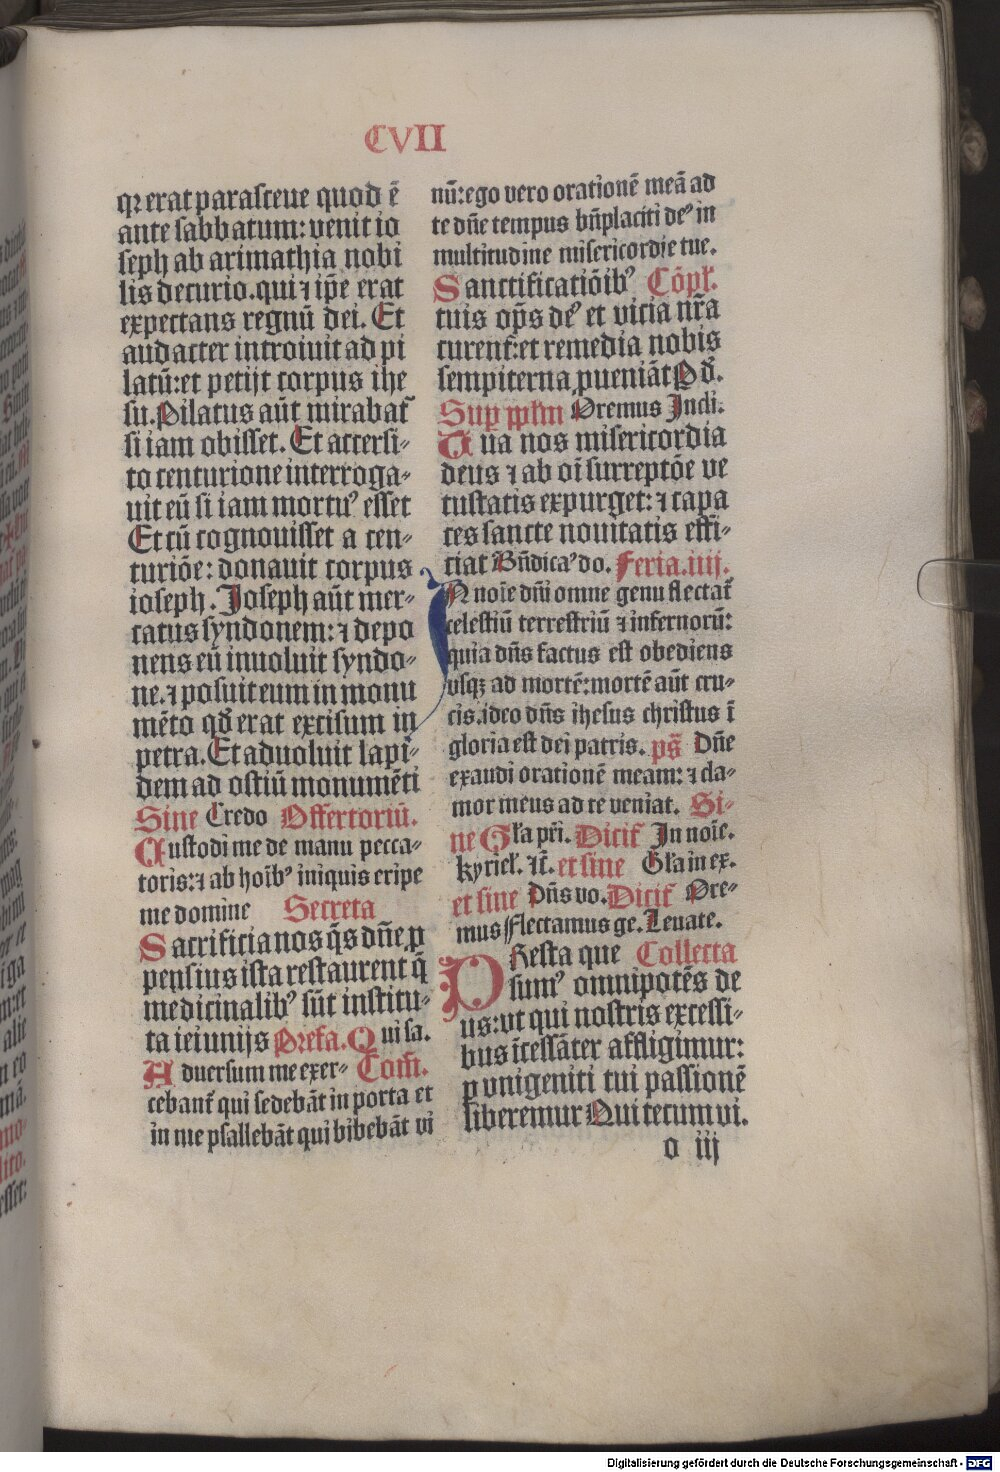 CVII
qꝛ erat parasceue quod ē
ante sabbatum: venit io
seph ab arimathia nobi
lis decurio. qui ⁊ ip̄e erat
expectans regnū dei. Et
audacter introiuit ad pi
latū: et petijt corpus ihe
su. Pilatus aūt mirabat᷑
si iam obisset. Et accersi-
to centurione interroga-
uit eū si iam mortuꝰ esset
Et cū cognouisset a cen-
turiōe: donauit corpus
ioseph. Joseph aūt mer-
catus syndonem: ⁊ depo
nens eū inuoluit syndo-
ne. ⁊ posuit eum in monu
mēto qđ erat excisum in
petra. Et aduoluit lapi-
dem ad ostiū monumēti
Sine Credo Offertoriū.
Custodi me de manu pecca-
toris: ⁊ ab hoībꝰ iniquis eripe
me domine Secreta
Sacrificia nos q̄s dn̄e ꝓ
pensius ista restaurent q̄
medicinalibꝰ sūt institu-
ta ieiunijs Prefa. Qui sa.
Aduersum me exer- Com̄.
cebant᷑ qui sedebāt in porta et
in me psallebāt qui bibebāt vi
nū: ego vero orationē meā ad
te dn̄e tempus bn̄placiti deꝰ in
multitudine misericordie tue.
Sanctificatiōibꝰ Cōpł.
tuis op̄s deꝰ et vicia nr̄a
curent᷑: et remedia nobis
sempiterna ꝓueniāt P d̄.
Suꝑ pp̄lm Oremus Indi.
Tua nos misericordia
deus ⁊ ab oī surreptōe ve
tustatis expurget: ⁊ capa
ces sancte nouitatis effi-
ciat Bn̄dicaꝰ do. Feria. iiij.
In noīe dn̄i omne genu flectat᷑
celestiū terrestriū ⁊ infernorū:
quia dn̄s factus est obediens
vsqꝫ ad mortē: mortē aūt cru-
cis. ideo dn̄s ihesus christus ī
gloria est dei patris. ps̄ Dn̄e
exaudi orationē meam: ⁊ cla-
mor meus ad te veniat. Si-
ne Gła pr̄i. Dicit᷑ In noīe.
kyriel. ⁊c̄. et sine Gła in ex.
et sine Dn̄s vo. Dicit᷑ Ore-
mus Flectamus ge. Leuate.
Presta que Collecta
sumꝰ omnipotēs de
us: vt qui nostris excessi-
bus īcessāter affligimur:
ꝑ vnigeniti tui passionē
liberemur Qui tecum vi.
o iij
Digitalisierung gefördert durch die Deutsche Forschungsgemeinschaft - DFG